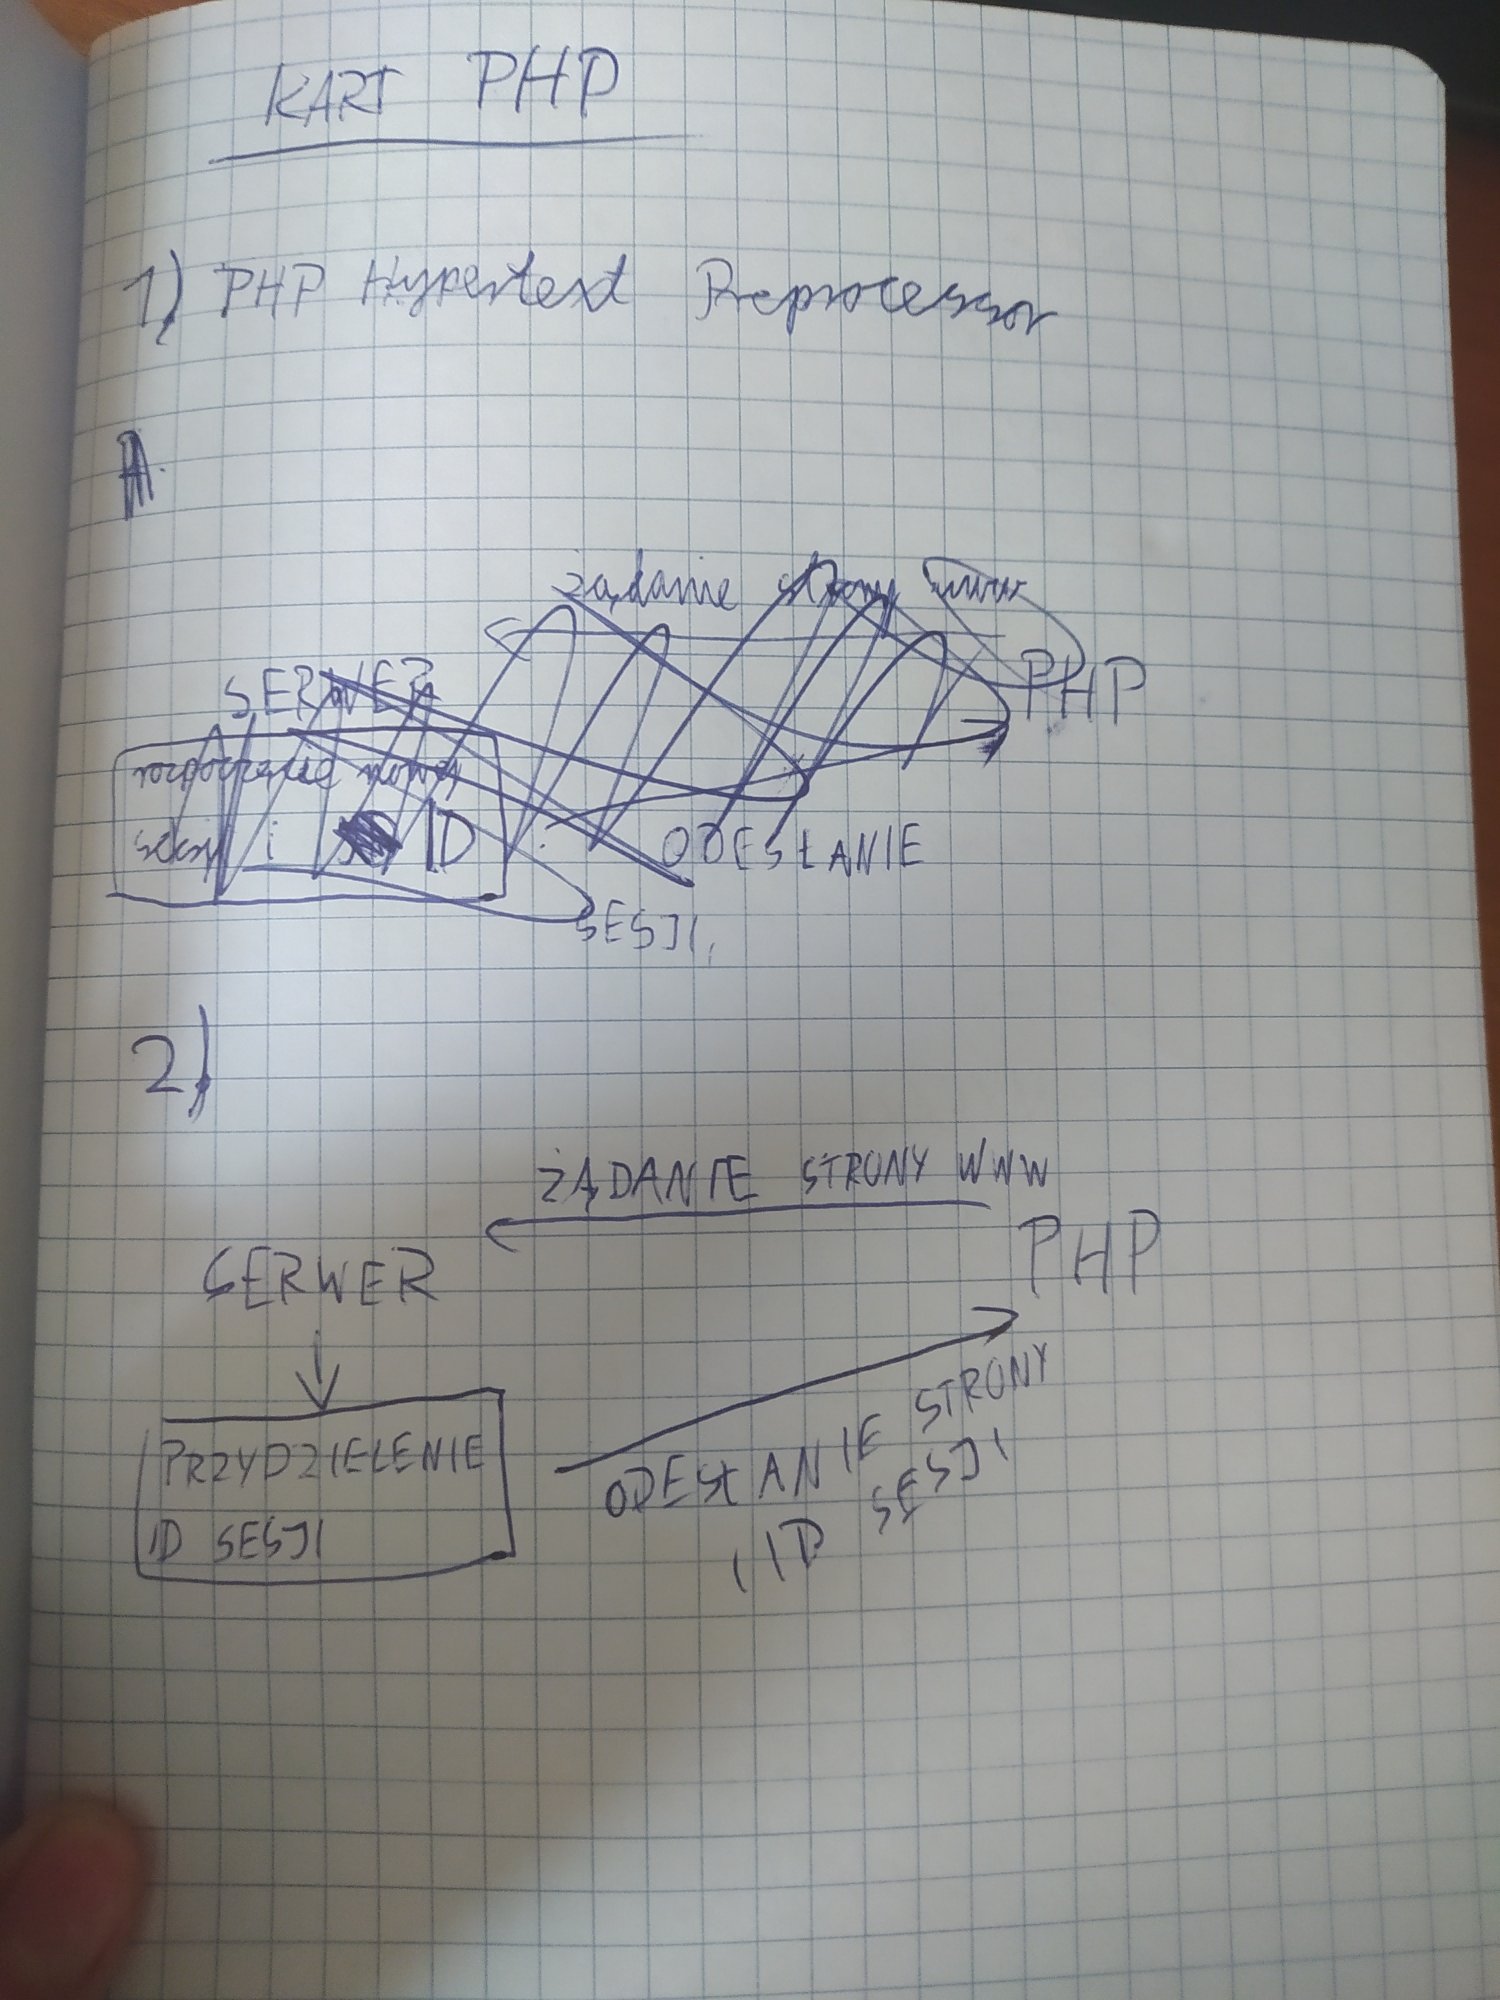 KART PHP
1) PHP Hypertext Preprocessor
A.
żądanie strony www
SERWER
PHP
rozpoczęcie nowej
sesji i ID
ODESŁANIE
SESJI,
2)
ŻĄDANIE STRONY WWW
SERWER
PHP
PRZYDZIELENIE
ID SESJI
ODESŁANIE STRONY
I ID SESJI